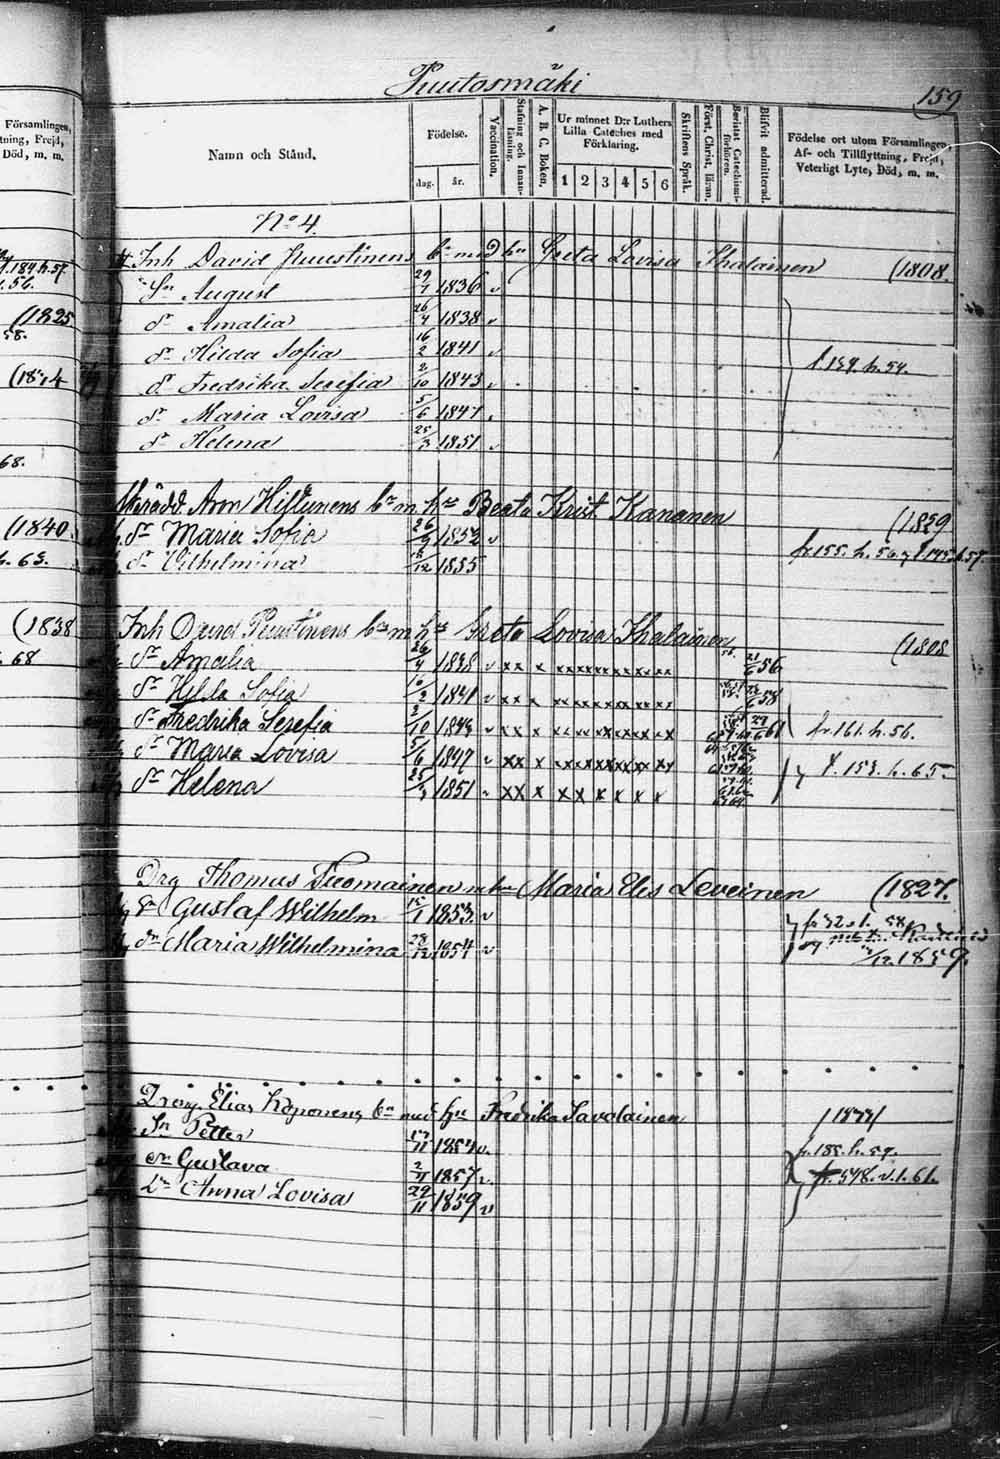 Puutosmäki
159
Församlingen,
tning, Frejd,
Död, m. m.
Namn och Stånd.
Födelse.
dag. år.
Vaccination.
Stafning och Innanläsning.
A. B. C. Boken.
Ur minnet D:r Luthers
Lilla Cateches med
Förklaring.
1 2 3 4 5 6
Skriftens Språk.
Först. Christ. läran.
Bevistat Catechismi-förhören.
Blifvit admitterad.
Födelse ort utom Församlingen,
Af- och Tillflyttning, Frejd,
Veterligt Lyte, Död, m. m.
No 4.
Inh David Puustinens bn med hu Greta Lovisa Ihalainen (1808.
Sn August 29/7 1836 v
dr Amalia 26/4 1838 v
dr Hilda Sofia 16/2 1841 v
dr Fredrika Serefia 2/10 1843 v
f. 139. h. 54.
dr Maria Lovisa 5/6 1847 v
dr Helena 25/3 1851 v
Skrädd. Aron Hiltunens bn m hu Beata Krist Kananen (1829
dr Maria Sofia 26/9 1852 v
dr Vilhelmina /12 1855
fr 155. h. 56.
Inh David Puustinens bn m hu Greta Lovisa Ihalainen (1808
dr Amalia 26/4 1838 v xx x xxxxxxxxxxx 21/6 56
dr Hilda Sofia 16/2 1841 v xx x 58
dr Fredrika Serefia 2/10 1843 v xx x 61
fr. 161. h. 56.
dr Maria Lovisa 5/6 1847 v xx x
f. 153. h. 65.
dr Helena 25/3 1851 v xx x x x x x x x
Drg Thomas Tuomainen m hu Maria Elis Leveinen (1827.
Sn Gustaf Wilhelm 15/1 1853. v
fr 32. h. 58.
dr Maria Wilhelmina 28/12 1854 v
/12. 1859.
Dreng Elias Koponens bn med hu Fredrika Savolainen
Sn Petter /11 1854 v.
fr. 185. h. 59.
dr Gustava 2/11 1857 v.
fr. 548. v. l. 61.
dr Anna Lovisa 29/11 1859 v
(1825
58.
68.
(1840.
h. 63.
(1838
68